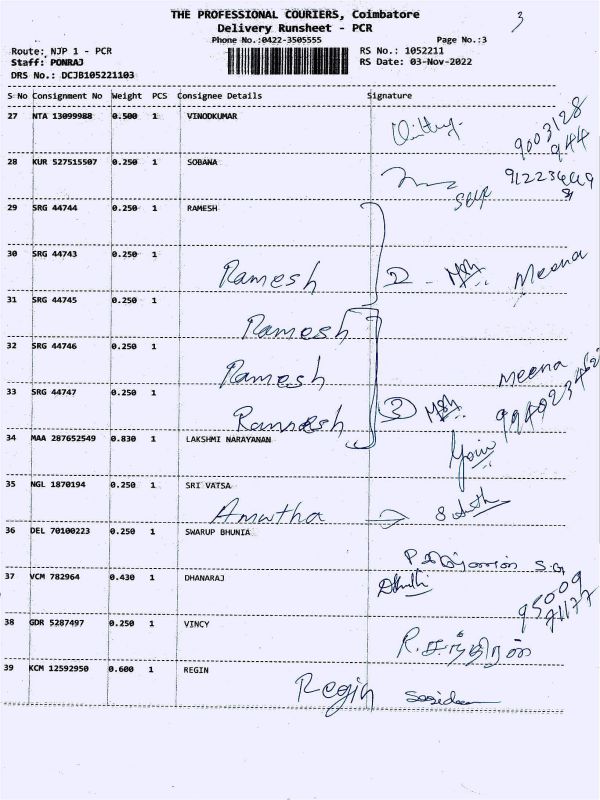 3
THE PROFESSIONAL COURIERS, Coimbatore
Delivery Runsheet - PCR
Phone No.:0422-3505555
Page No.:3
Route: NJP 1 - PCR
RS No.: 1052211
Staff: PONRAJ
RS Date: 03-Nov-2022
DRS No.: DCJB105221103
S No Consignment No Weight PCS Consignee Details Signature
27 NTA 13099988 0.500 1 VINODKUMAR
9003128
944
28 KUR 527515507 0.250 1 SOBANA
self
29 SRG 44744 0.250 1 RAMESH
30 SRG 44743 0.250 1
Ramesh 2 Meena
31 SRG 44745 0.250 1
Ramesh
32 SRG 44746 0.250 1
Ramesh Meena
33 SRG 44747 0.250 1
Ramnesh 3
34 MAA 287652549 0.830 1 LAKSHMI NARAYANAN
35 NGL 1870194 0.250 1 SRI VATSA
Amutha
36 DEL 70100223 0.250 1 SWARUP BHUNIA
37 VCM 782964 0.430 1 DHANARAJ
95009
71177
38 GDR 5287497 0.250 1 VINCY
R. சந்திரன்
39 KCM 12592950 0.600 1 REGIN
Regin